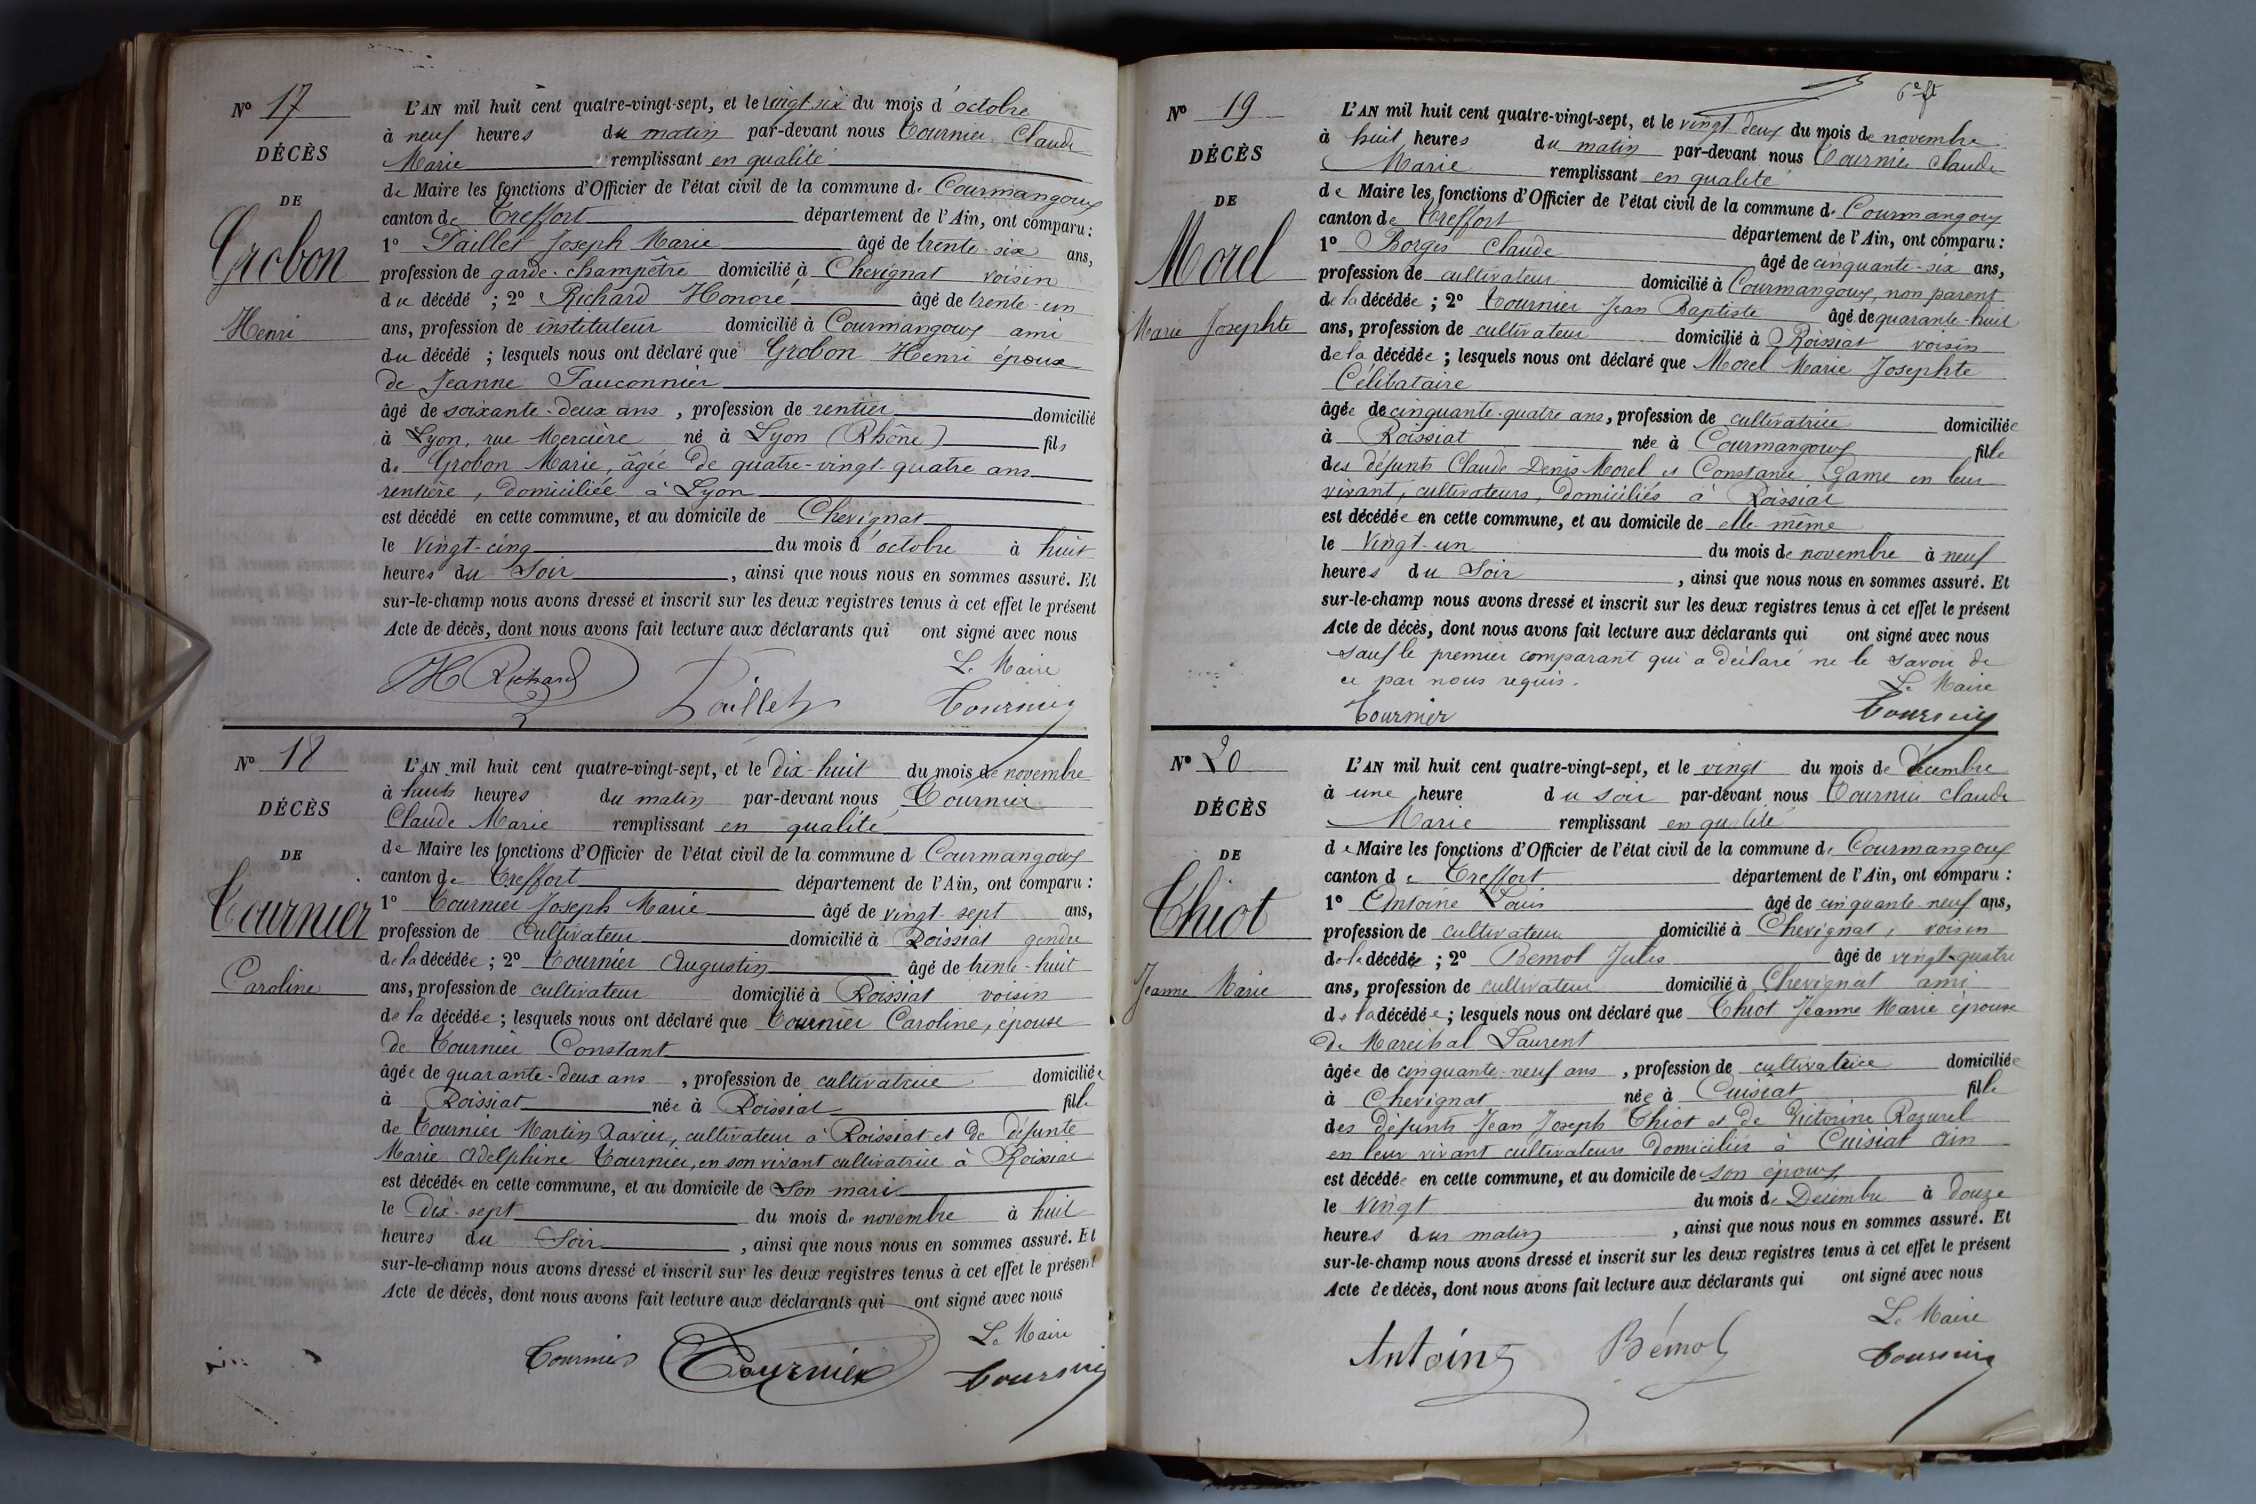 N° 17
DÉCÈS
DE
Grobon
Henri
L'AN mil huit cent quatre-vingt-sept, et le vingt six du mois d'octobre
à neuf heures du matin par-devant nous Tournier Claude
Marie remplissant en qualité
de Maire les fonctions d'Officier de l'état civil de la commune de Courmangoux
canton de Treffort département de l'Ain, ont comparu :
1° Paillet Joseph Marie âgé de trente-six ans,
profession de garde-champêtre domicilié à Chevignat voisin
du décédé ; 2° Richard Honoré âgé de trente-un
ans, profession de instituteur domicilié à Courmangoux ami
du décédé ; lesquels nous ont déclaré que Grobon Henri époux
de Jeanne Fauconnier
âgé de soixante-deux ans, profession de rentier domicilié
à Lyon, rue Mercière né à Lyon (Rhône) fils
de Grobon Marie, âgée de quatre-vingt-quatre ans
rentière, domiciliée à Lyon
est décédé en cette commune, et au domicile de Chevignat
le vingt-cinq du mois d'octobre à huit
heures du Soir, ainsi que nous nous en sommes assuré. Et
sur-le-champ nous avons dressé et inscrit sur les deux registres tenus à cet effet le présent
Acte de décès, dont nous avons fait lecture aux déclarants qui ont signé avec nous
Le Maire
H Richard Paillet Tournier
N° 18
DÉCÈS
DE
Tournier
Caroline
L'AN mil huit cent quatre-vingt-sept, et le dix-huit du mois de novembre
à heures du matin par-devant nous Tournier
Claude Marie remplissant en qualité
de Maire les fonctions d'Officier de l'état civil de la commune d Courmangoux
canton de Treffort département de l'Ain, ont comparu :
1° Tournier Joseph Marie âgé de vingt-sept ans,
profession de Cultivateur domicilié à Roissiat gendre
de la décédée ; 2° Tournier Augustin âgé de trente-huit
ans, profession de cultivateur domicilié à Roissiat voisin
de la décédée ; lesquels nous ont déclaré que Tournier Caroline, épouse
de Tournier Constant
âgée de quarante-deux ans, profession de cultivatrice domiciliée
à Roissiat née à Roissiat fille
de Tournier Martin Xavier, cultivateur à Roissiat et de défunte
Marie Adelphine Tournier, en son vivant cultivatrice à Roissiat
est décédée en cette commune, et au domicile de Son mari
le Dix-sept du mois de novembre à huit
heures du Soir, ainsi que nous nous en sommes assuré. Et
sur-le-champ nous avons dressé et inscrit sur les deux registres tenus à cet effet le présent
Acte de décès, dont nous avons fait lecture aux déclarants qui ont signé avec nous
Le Maire
Tournier Tournier Tournier
N° 19
DÉCÈS
DE
Morel
Marie Josephte
L'AN mil huit cent quatre-vingt-sept, et le vingt-deux du mois de novembre
à huit heures du matin par-devant nous Tournier Claude
Marie remplissant en qualité
de Maire les fonctions d'Officier de l'état civil de la commune de Courmangoux
canton de Treffort département de l'Ain, ont comparu :
1° Borges Claude âgé de cinquante-six ans,
profession de cultivateur domicilié à Courmangoux, non parent
de la décédée ; 2° Tournier Jean Baptiste âgé de quarante-huit
ans, profession de cultivateur domicilié à Roissiat voisin
de la décédée ; lesquels nous ont déclaré que Morel Marie Josephte
Célibataire
âgée de cinquante-quatre ans, profession de cultivatrice domiciliée
à Roissiat née à Courmangoux fille
des défunts Claude Denis Morel et Constance Game en leur
vivant, cultivateurs, domiciliés à Roissiat
est décédée en cette commune, et au domicile de elle-même
le Vingt-un du mois de novembre à neuf
heures du Soir, ainsi que nous nous en sommes assuré. Et
sur-le-champ nous avons dressé et inscrit sur les deux registres tenus à cet effet le présent
Acte de décès, dont nous avons fait lecture aux déclarants qui ont signé avec nous
sauf le premier comparant qui a déclaré ne le savoir de
ce par nous requis.
Le Maire
Tournier Tournier
N° 20
DÉCÈS
DE
Thiot
Jeanne Marie
L'AN mil huit cent quatre-vingt-sept, et le vingt du mois de décembre
à une heure du soir par-devant nous Tournier Claude
Marie remplissant en qualité
de Maire les fonctions d'Officier de l'état civil de la commune de Courmangoux
canton de Treffort département de l'Ain, ont comparu :
1° Antoine Louis âgé de cinquante-neuf ans,
profession de cultivateur domicilié à Chevignat, voisin
de la décédée ; 2° Bemol Jules âgé de vingt-quatre
ans, profession de cultivateur domicilié à Chevignat ami
de la décédée ; lesquels nous ont déclaré que Thiot Jeanne Marie épouse
de Marechal Laurent
âgée de cinquante-neuf ans, profession de cultivatrice domiciliée
à Chevignat née à Cuisiat fille
des défunts Jean Joseph Thiot et de Victorine Razurel
en leur vivant cultivateurs domiciliés à Cuisiat Ain
est décédée en cette commune, et au domicile de son époux
le vingt du mois de Décembre à douze
heures du matin, ainsi que nous nous en sommes assuré. Et
sur-le-champ nous avons dressé et inscrit sur les deux registres tenus à cet effet le présent
Acte de décès, dont nous avons fait lecture aux déclarants qui ont signé avec nous
Le Maire
Antoine Bémol Tournier